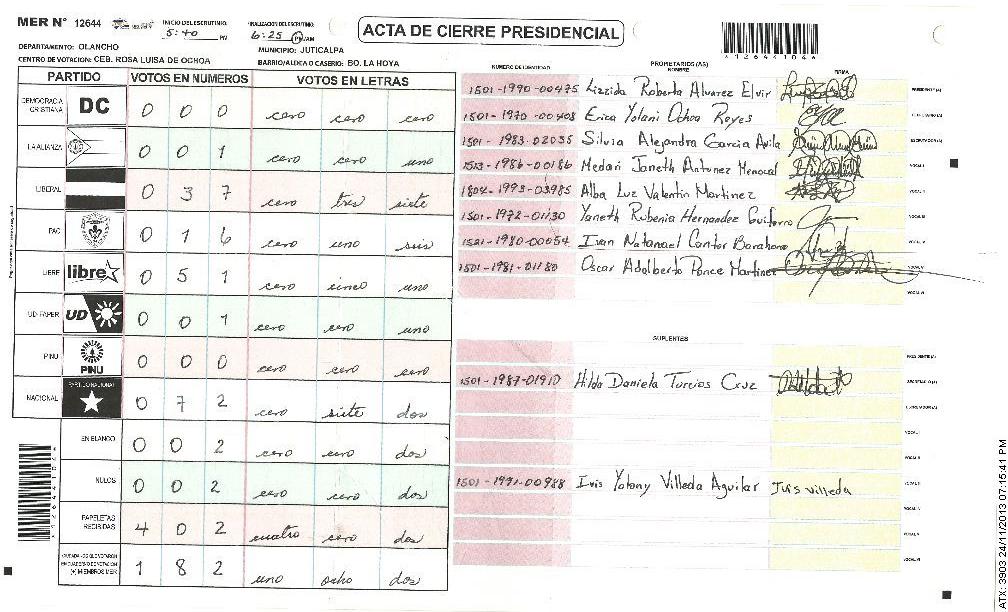 MER N° 12644
INICIO DEL ESCRUTINIO:
5:40 PM
FINALIZACION DEL ESCRUTINIO:
6:25 PM/AM
ACTA DE CIERRE PRESIDENCIAL
*12644104*
DEPARTAMENTO: OLANCHO
MUNICIPIO: JUTICALPA
CENTRO DE VOTACION: CEB. ROSA LUISA DE OCHOA
BARRIO/ALDEA O CASERIO: BO. LA HOYA
PARTIDO VOTOS EN NUMEROS VOTOS EN LETRAS
DEMOCRACIA CRISTIANA DC 0 0 0 cero cero cero
LA ALIANZA 0 0 1 cero cero uno
LIBERAL 0 3 7 cero tres siete
PAC 0 1 6 cero uno seis
LIBRE libre 0 5 1 cero cinco uno
UD-FAPER UD 0 0 1 cero cero uno
PINU PINU 0 0 0 cero cero cero
NACIONAL PARTIDO NACIONAL 0 7 2 cero siete dos
EN BLANCO 0 0 2 cero cero dos
NULOS 0 0 2 cero cero dos
PAPELETAS RECIBIDAS 4 0 2 cuatro cero dos
CIUDADANOS QUE VOTARON EN CUADERNO DE VOTACION (+) MIEMBROS MER 1 8 2 uno ocho dos
NUMERO DE IDENTIDAD PROPIETARIOS (AS) NOMBRE FIRMA
1501-1990-00475 Lizzida Roberta Alvarez Elvir PRESIDENTE (A)
1501-1970-00408 Erica Yolani Ochoa Reyes SECRETARIO (A)
1501-1983-02035 Silvia Alejandra Garcia Avila ESCRUTADOR (A)
1513-1986-00186 Medari Janeth Antunez Menocal VOCAL I
1804-1993-03985 Alba Luz Valentin Martinez VOCAL II
1501-1972-01130 Yaneth Rubenia Hernandez Guiferro VOCAL III
1521-1980-00054 Ivan Natanael Cantor Barahona VOCAL IV
1501-1981-01180 Oscar Adalberto Ponce Martinez VOCAL V
VOCAL VI
SUPLENTES
PRESIDENTE (A)
1501-1987-01910 Hilda Daniela Turcios Cruz SECRETARIO (A)
ESCRUTADOR (A)
VOCAL I
VOCAL II
1501-1991-00988 Ivis Yolany Villeda Aguilar Ivis Villeda VOCAL III
VOCAL IV
VOCAL V
VOCAL VI
*12644104*
ATX: 3903 24/11/2013 07:15:41 PM